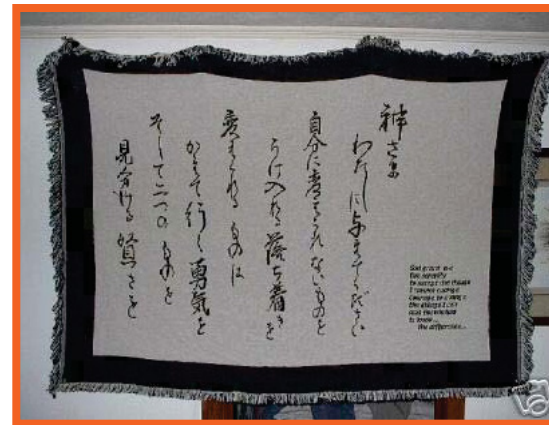 神さま
わたしに与えてください
自分に変えられないものを
うけ入れる落ち着きを
変えられるものは
かえて行く勇気を
そして二つのものを
見分ける賢さを
God grant me
the serenity
to accept the things
I cannot change
courage to change
the things I can
and the wisdom
to know...
the difference...